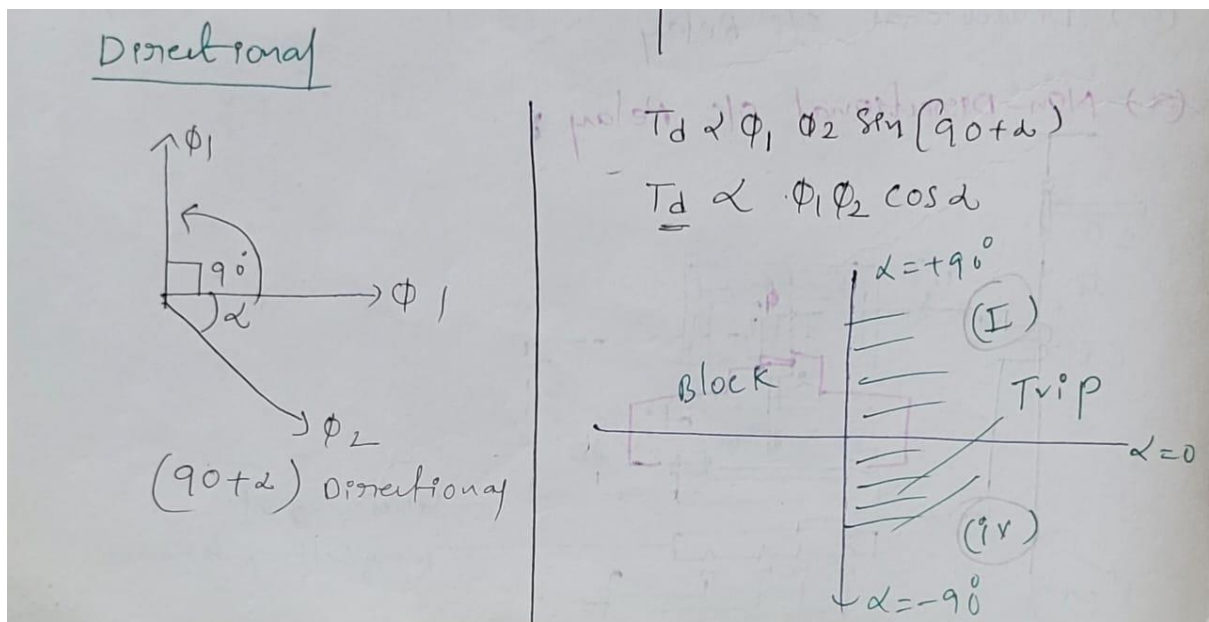 Directional
ϕ1
90°
ϕ1
α
ϕ2
(90+α) Directional
Td α ϕ1 ϕ2 Sin(90+α)
Td α ϕ1ϕ2 cosα
α=+90°
(I)
Block
Trip
α=0
(iv)
α=-90°